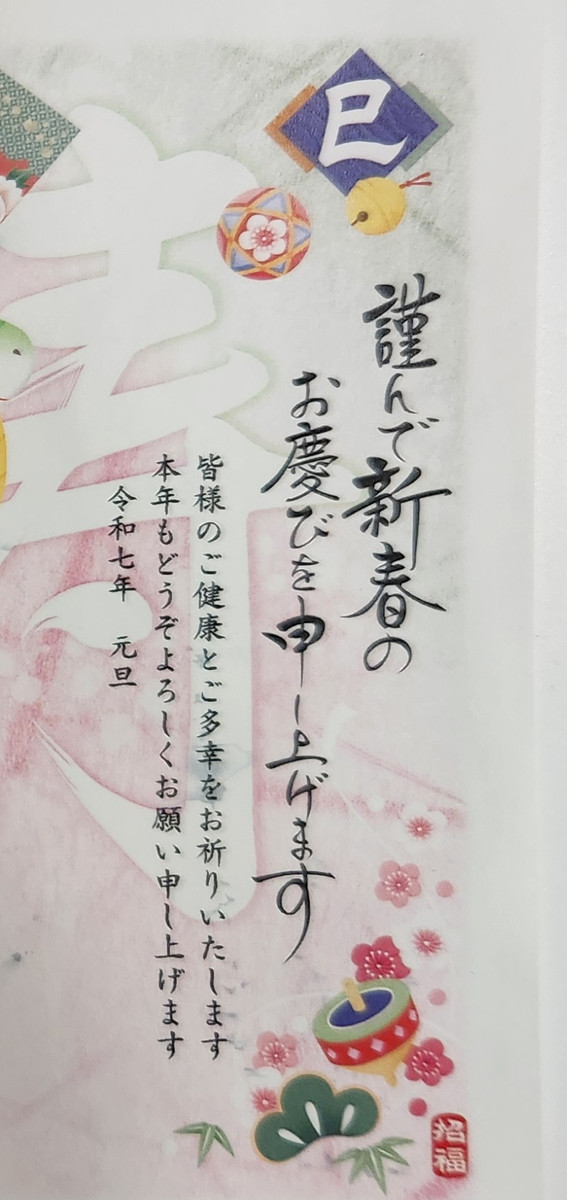 巳
謹んで新春の
お慶びを申し上げます
皆様のご健康とご多幸をお祈りいたします
本年もどうぞよろしくお願い申し上げます
令和七年 元旦
寿
招福